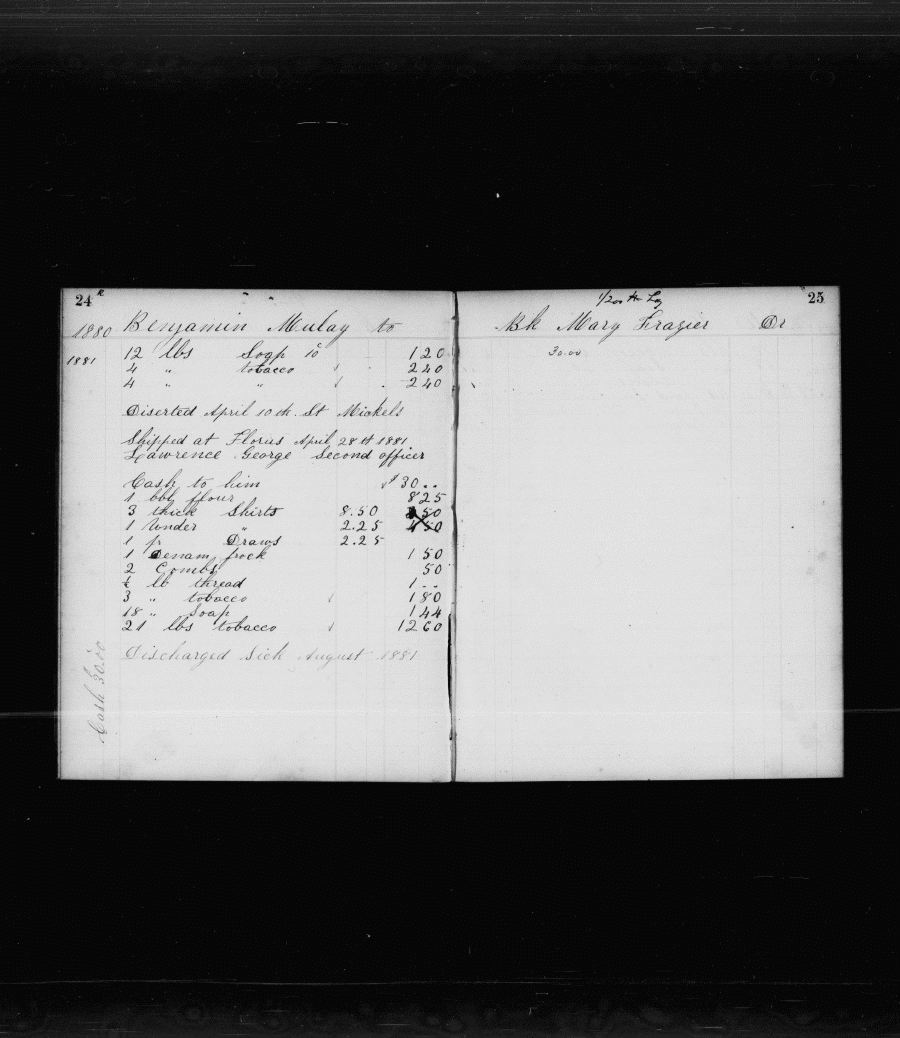 24
1880 Benjamin Mulay to
1881 12 lbs Soap 10 120
4 " tobacco 240
4 " " 240
Diserted April 10th. St Mickels
Shipped at Florus April 28th 1881
Lawrence George Second officer
Cash to him $30..
1 bbl flour 825
3 thick Shirts 8.50 50
1 Under " 2.25 50
1 pr Draws 2.25
1 Denam frock 150
2 Combs 50
½ lb thread 1..
3 " tobacco 180
18 " Soap 144
21 lbs tobacco 1260
Discharged Sick August 1881
Cash 30.00
1/200 th Lay 25
Bk Mary Frazier Dr
30.00